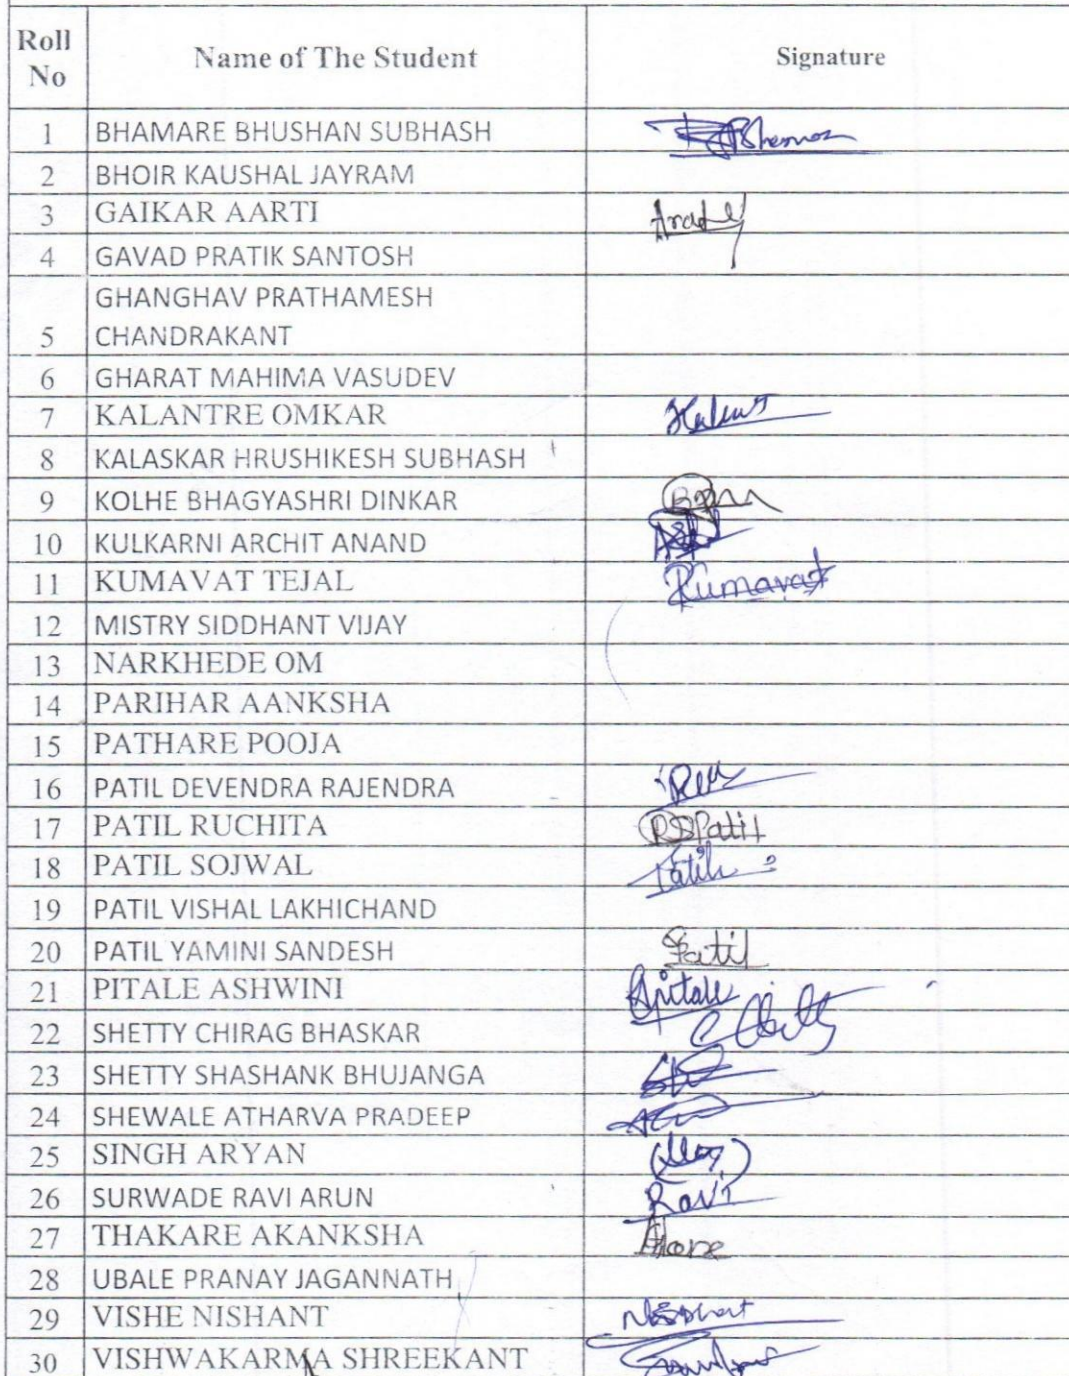 Roll No Name of The Student Signature
1 BHAMARE BHUSHAN SUBHASH
2 BHOIR KAUSHAL JAYRAM
3 GAIKAR AARTI
4 GAVAD PRATIK SANTOSH
GHANGHAV PRATHAMESH
5 CHANDRAKANT
6 GHARAT MAHIMA VASUDEV
7 KALANTRE OMKAR
8 KALASKAR HRUSHIKESH SUBHASH
9 KOLHE BHAGYASHRI DINKAR
10 KULKARNI ARCHIT ANAND
11 KUMAVAT TEJAL Kumavat
12 MISTRY SIDDHANT VIJAY
13 NARKHEDE OM
14 PARIHAR AANKSHA
15 PATHARE POOJA
16 PATIL DEVENDRA RAJENDRA
17 PATIL RUCHITA RSPatil
18 PATIL SOJWAL
19 PATIL VISHAL LAKHICHAND
20 PATIL YAMINI SANDESH Patil
21 PITALE ASHWINI Apitale
22 SHETTY CHIRAG BHASKAR
23 SHETTY SHASHANK BHUJANGA
24 SHEWALE ATHARVA PRADEEP
25 SINGH ARYAN
26 SURWADE RAVI ARUN Ravi
27 THAKARE AKANKSHA
28 UBALE PRANAY JAGANNATH
29 VISHE NISHANT
30 VISHWAKARMA SHREEKANT